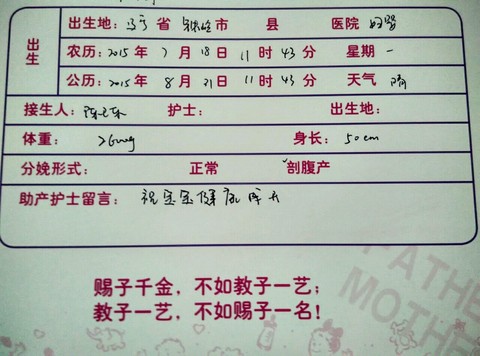 出生
出生地: 省 市 县 医院 妇婴
农历: 2015年 7月 18日 11时 43分 星期 一
公历: 2015年 8月 31日 11时 43分 天气 晴
接生人: 护士: 出生地:
体重: 身长: 50cm
分娩形式: 正常 ✓剖腹产
助产护士留言: 祝宝宝健康成长
赐子千金，不如教子一艺；
教子一艺，不如赐子一名！
FATHE
MOTHE